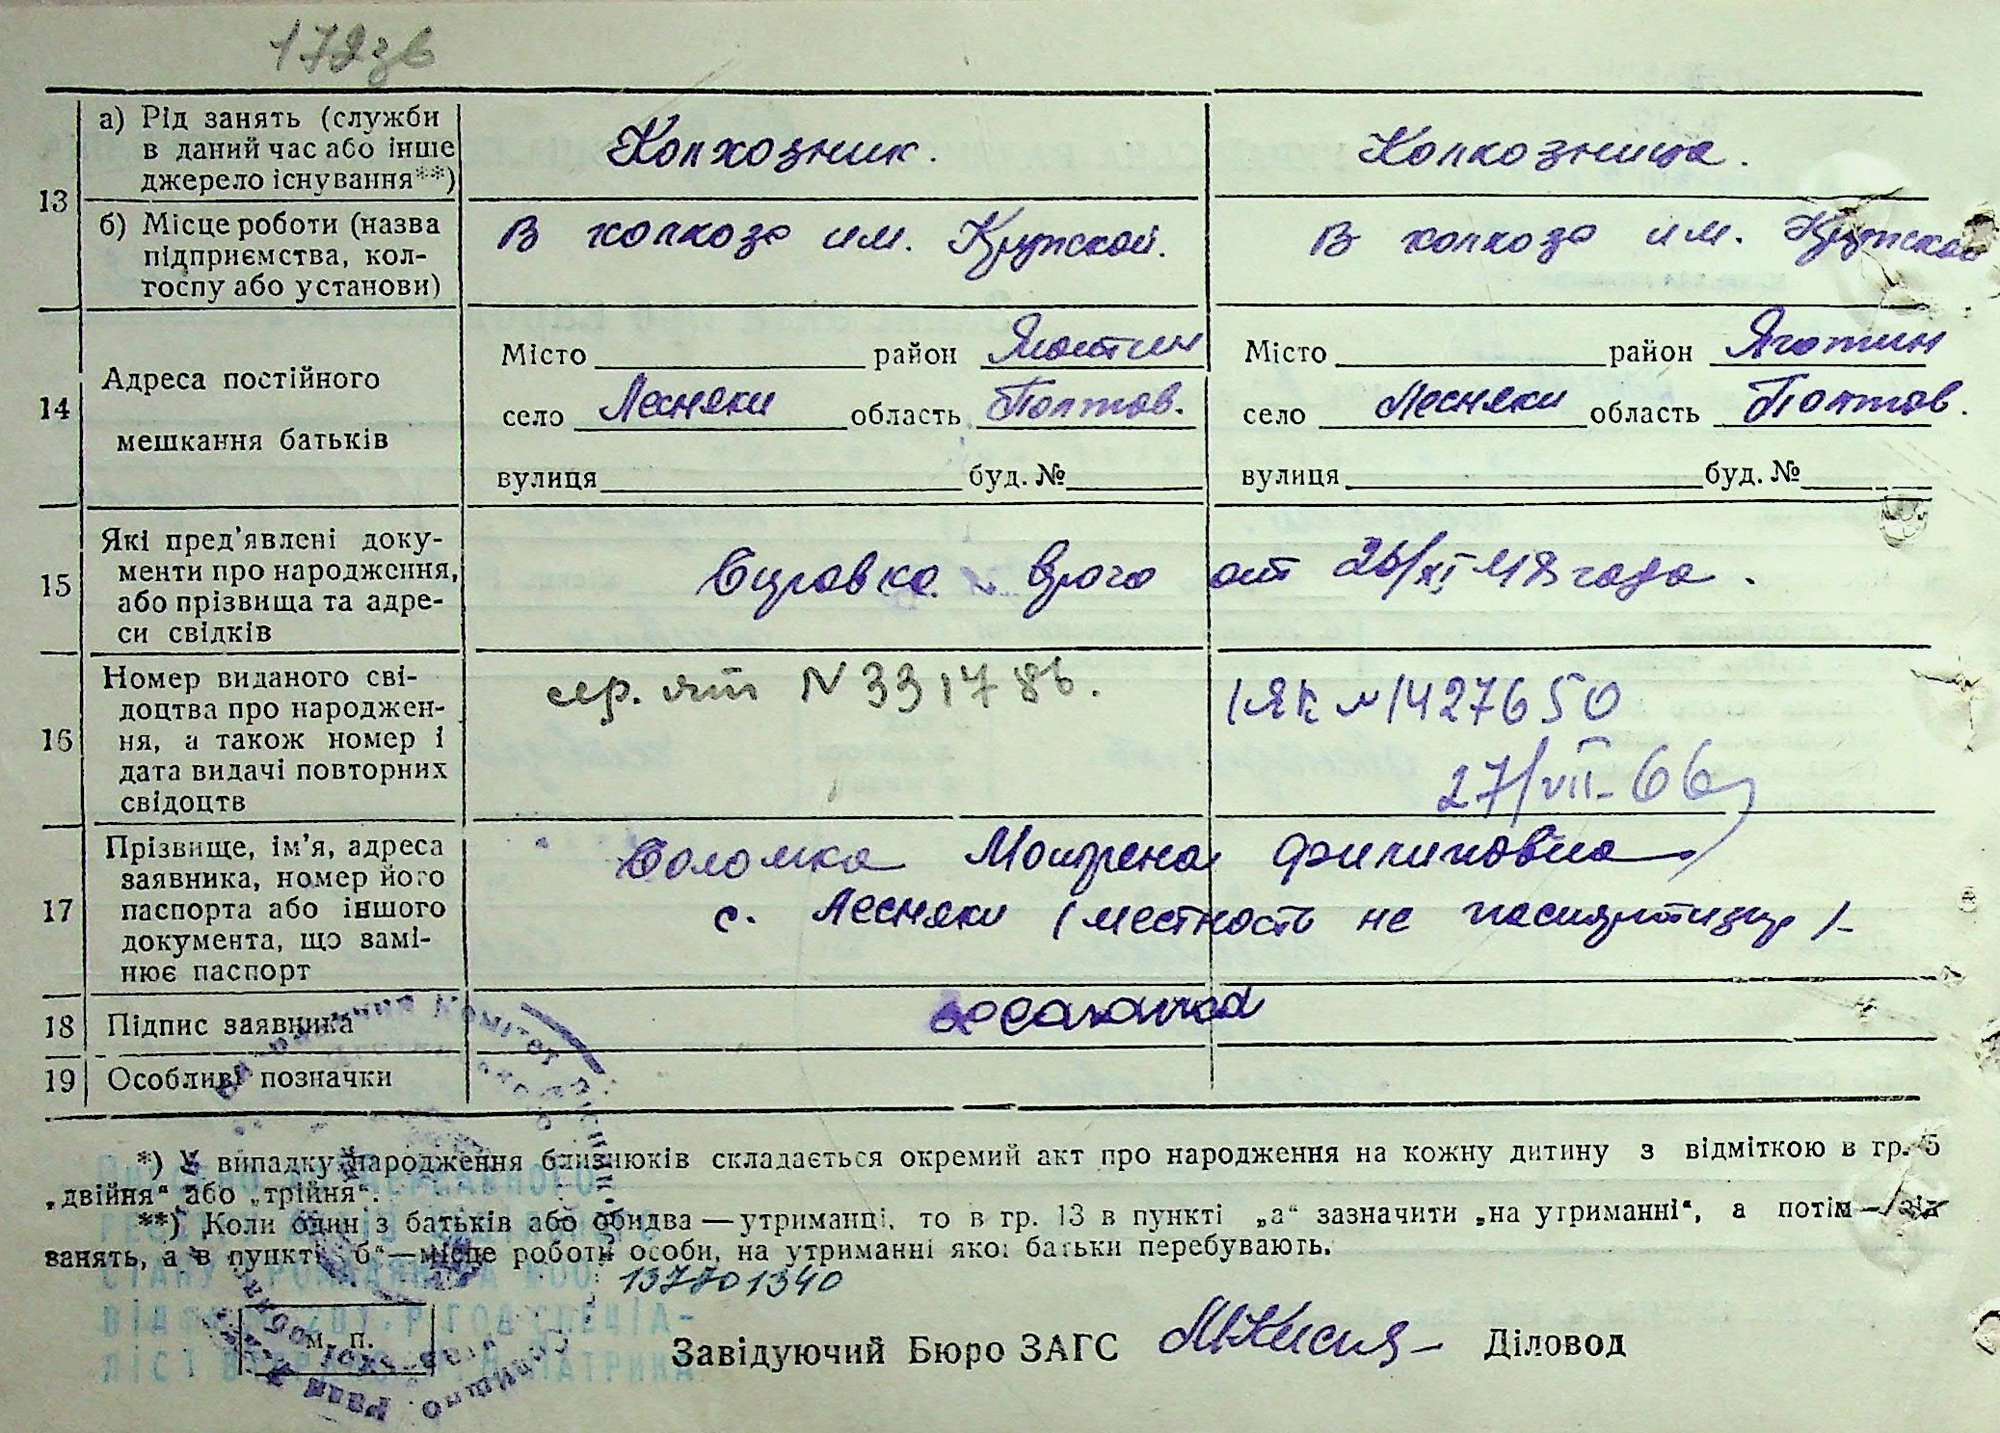 172 зв
13
а) Рід занять (служби
в даний час або інше
джерело існування**)
Колхозник.
Колхозница.
б) Місце роботи (назва
підприємства, кол-
госпу або установи)
В колхозе им. Крупской.
В колхозе им. Крупской
14
Адреса постійного
мешкання батьків
Місто район Яготин
село Лесняки область Полтав.
вулиця буд. №
Місто район Яготин
село Лесняки область Полтав.
вулиця буд. №
15
Які пред'явлені доку-
менти про народження,
або прізвища та адре-
си свідків
Справка врача от 26/XI 48 года.
16
Номер виданого сві-
доцтва про народжен-
ня, а також номер і
дата видачі повторних
свідоцтв
сер. N 331786.
ІЯК № 1427650
27/VII-66
17
Прізвище, ім'я, адреса
заявника, номер його
паспорта або іншого
документа, що замі-
нює паспорт
Соломка Филиповна
с. Лесняки (местность не
18
Підпис заявника
19
Особливі позначки
*) У випадку народження близнюків складається окремий акт про народження на кожну дитину з відміткою в гр. 5
„двійня“ або „трійня“.
**) Коли один з батьків або обидва—утриманці, то в гр. 13 в пункті „а“ зазначити „на утриманні“, а потім—рід
занять, а в пункті „б“—місце роботи особи, на утриманні якої батьки перебувають.
137701340
м. п.
Завідуючий Бюро ЗАГС Діловод